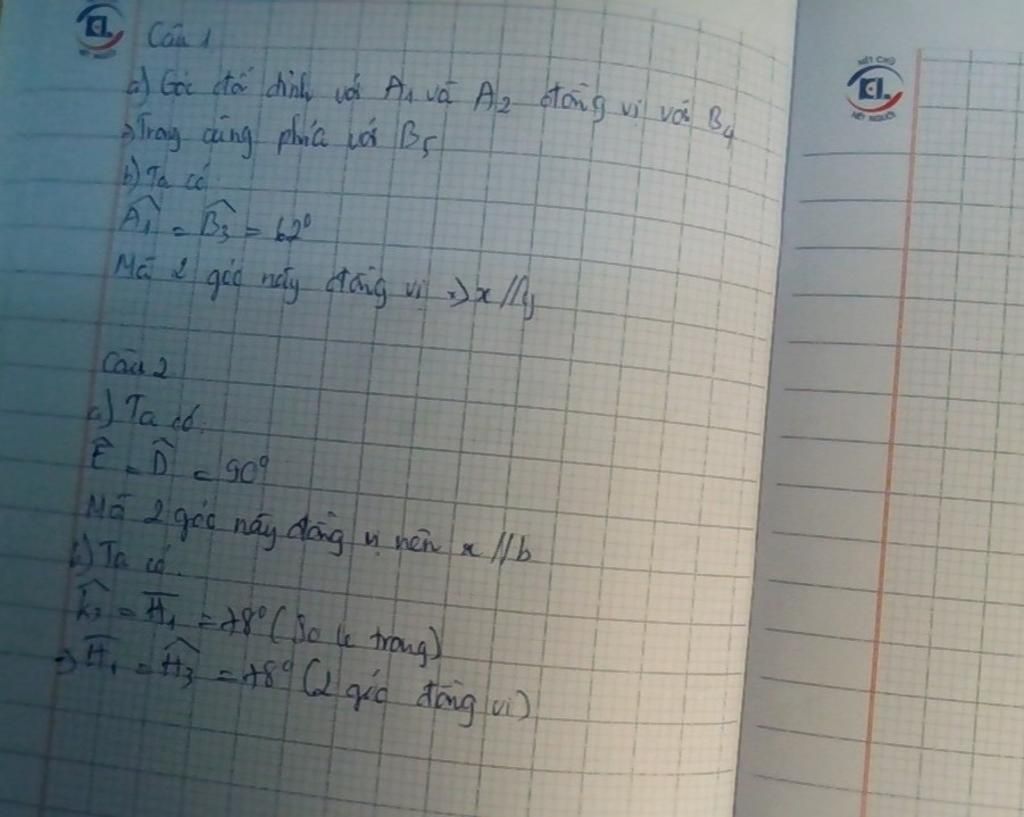 Câu 1
a) Góc đối đỉnh với A1 và A2 đồng vị với B4
⇒ Trong cùng phía với B5
b) Ta có
A1 = B3 = 62°
Mà 2 góc này đồng vị ⇒ x // y
Câu 2
a) Ta có:
Ê = D̂ = 90°
Mà 2 góc này đồng vị nên x // b
Ta có
= H1 = 78° (So le trong)
⇒ H1 = H3 = 78° (2 góc đồng vị)
NÉT CHỮ
KL.
NẾT NGƯỜI